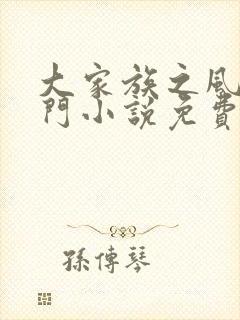 大家族之風
門小說免費
孫傳琴